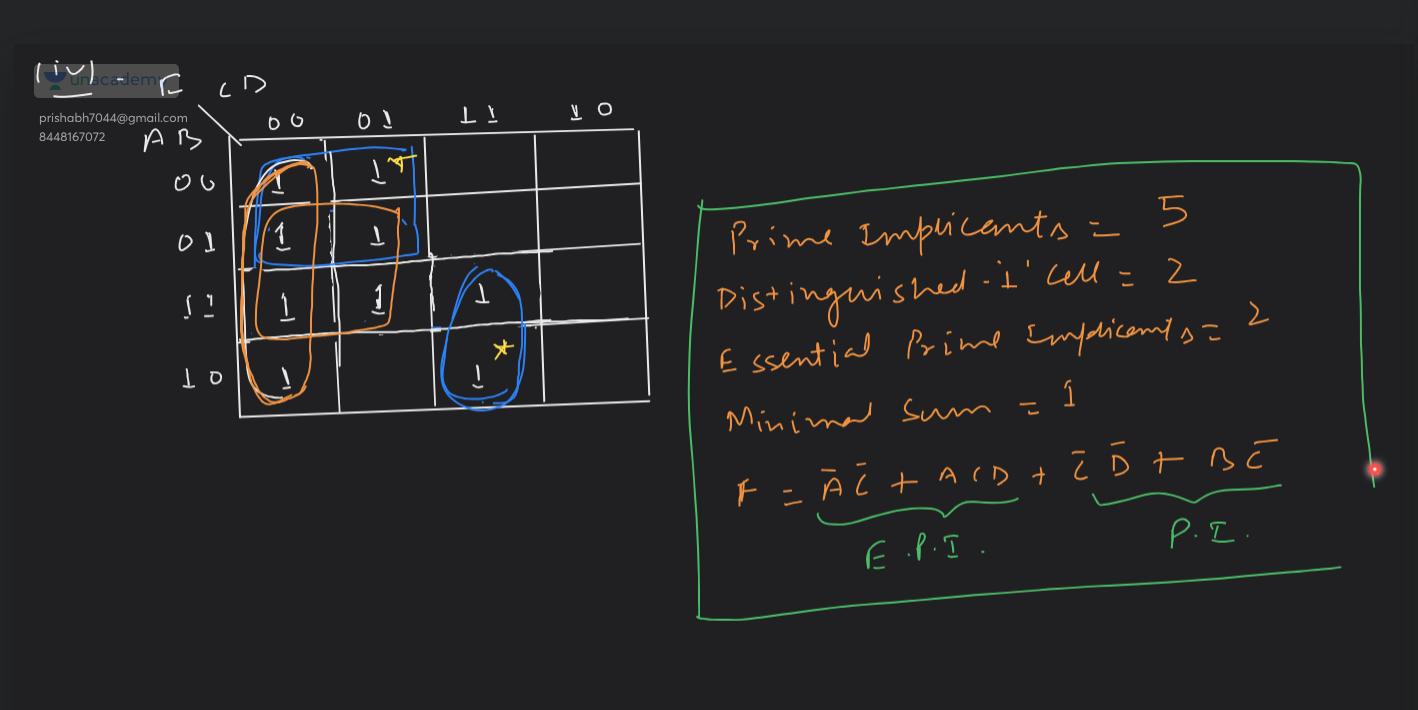 (iv) - F CD
unacademy
prishabh7044@gmail.com
8448167072
AB
00 01 11 10
00 1 1
01 1 1
11 1 1 1
10 1 1
Prime Implicants = 5
Distinguished -'1' cell = 2
Essential Prime Implicants = 2
Minimal Sum = 1
F = A̅ C̅ + A C D + C̅ D̅ + B C̅
E.P.I. P.I.